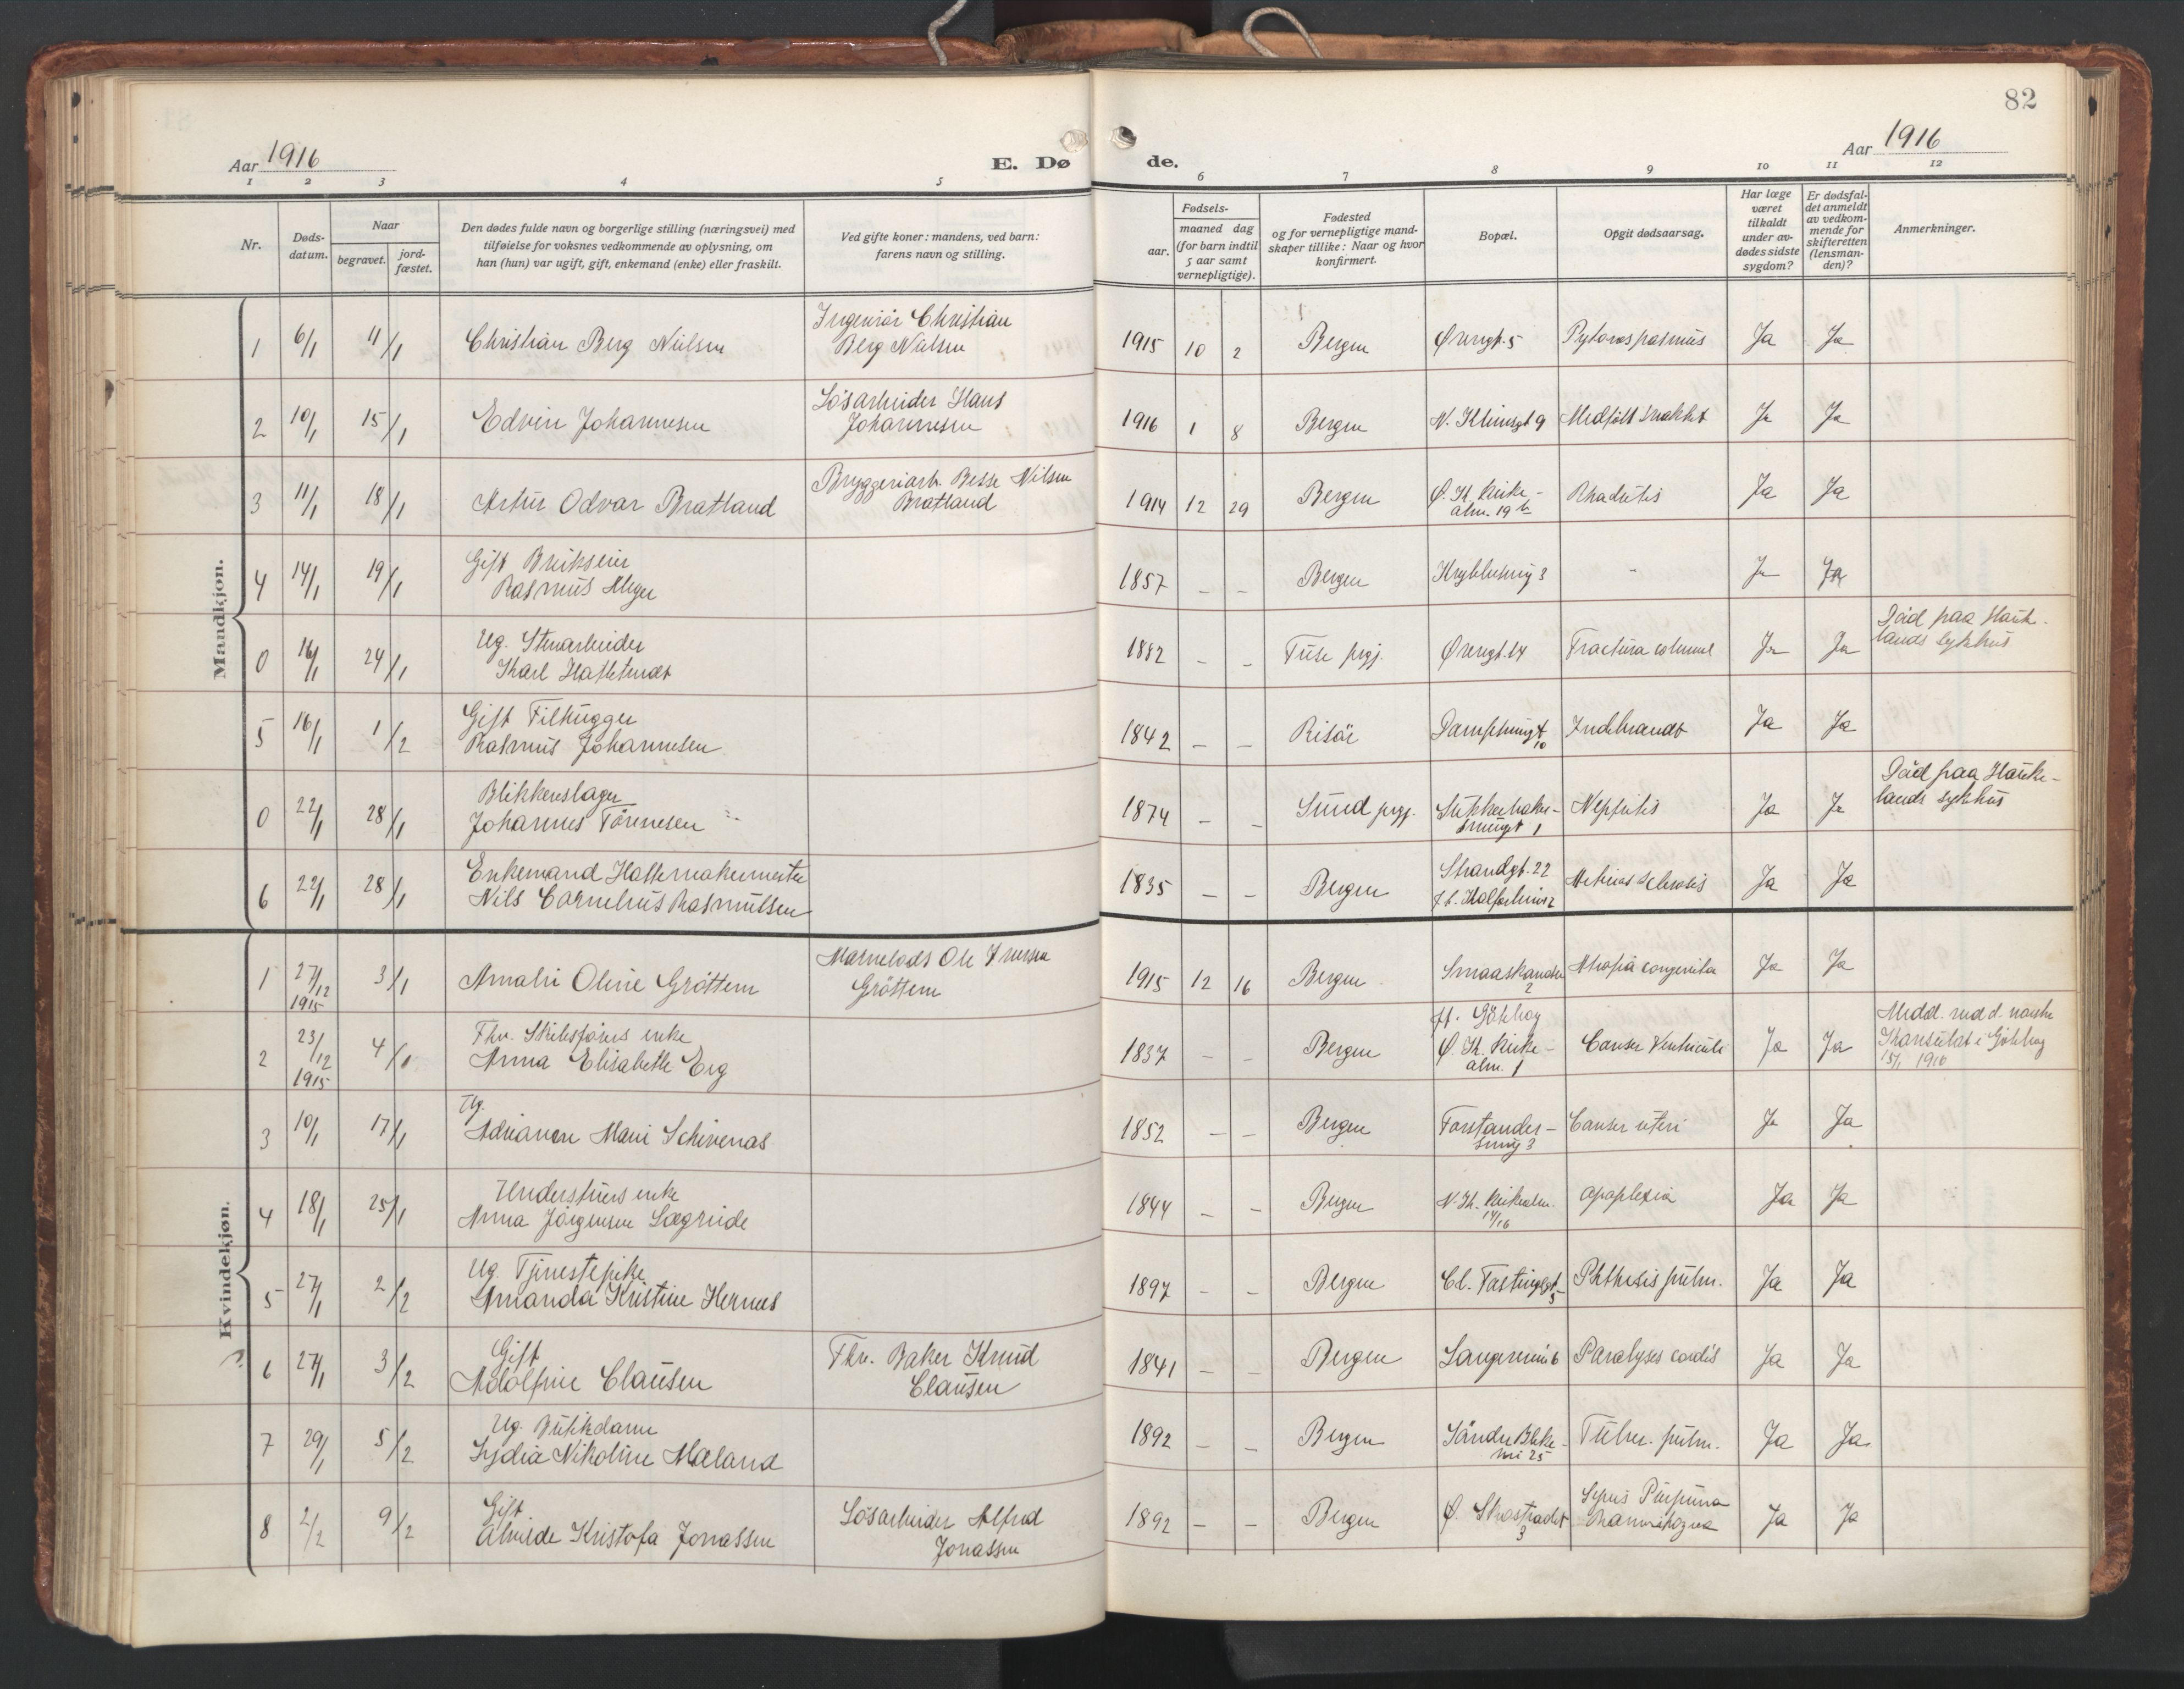 82
Aar 1916
E. Dø
de.
Aar 1916
1 2 3 4 5
6 7 8 9 10 11 12
Nr.
Døds-
datum.
Naar
begravet.
jord-
fæstet.
Den dødes fulde navn og borgerlige stilling (næringsvei) med
tilføielse for voksnes vedkommende av oplysning, om
han (hun) var ugift, gift, enkemand (enke) eller fraskilt.
Ved gifte koner: mandens, ved barn:
farens navn og stilling.
Fødsels-
aar.
maaned dag
(for barn indtil
5 aar samt
vernepligtige).
Fødested
og for vernepligtige mand-
skaper tillike: Naar og hvor
konfirmert.
Bopæl.
Opgit dødsaarsag.
Har læge
været
tilkaldt
under av-
dødes sidste
sygdom?
Er dødsfal-
det anmeldt
av vedkom-
mende for
skifteretten
(lensman-
den)?
Anmerkninger.
Mandkjøn.
Ingeniör Christian
1 6/1 11/1 Christian Berg Nielsen Berg Nielsen 1915 10 2 Bergen Øvregt. 5 Pylorospasmus Ja Ja
Lösarbeider Hans
2 10/1 15/1 Edvin Johannesen Johannesen 1916 1 8 Bergen Medfödt svakhet Ja Ja
Bryggeriarb. Besse Nilsen
3 11/1 18/1 Artur Odvar Bratland Bratland 1914 12 29 Bergen Ø. K. Kirke- Ja Ja
alm. 19 b
Gift
4 14/1 19/1 Rasmus Meyer 1857 – – Bergen 3 " Ja Ja
Ug. Stenarbeider
0 16/1 24/1 Karl 1882 – – Fuse prgj. Øvregt. 14 Fractura Ja Ja
Död paa Hauke-
lands sykehus
Gift Filhugger
5 16/1 1/2 Rasmus Johannesen 1842 – – Risör 10 Ja Ja
Blikkenslager
0 22/1 28/1 Johannes Tönnesen 1874 – – Sund prgj. Sukkerhus-
smuget 1 Ja Ja
Död paa Hauke-
lands sykehus
Enkemand Hattemakermester
6 22/1 28/1 Nils Cornelius Rasmussen 1835 – – Bergen Strandgt. 22 Ja Ja
Kvindekjøn.
Ole Iversen
1 27/12 1915 3/1 Amalie Oline Gröttem Gröttem 1915 12 16 Bergen 2 congenita Ja Ja
Fhv. Skibsförers enke
2 23/12 1915 4/1 Anna Elisabeth Erg 1837 – – Bergen
Ø. K. Kirke-
alm. 1 Cancer Ventriculi Ja Ja
Konsulat i
15/1 1916
Ug.
3 10/1 17/1 Marie Schivenas 1852 – – Bergen Forstander-
smug 3 Cancer uteri Ja Ja
enke
4 18/1 25/1 Anna Jörgensen Sægrude 1844 – – Bergen 14/16 apoplexia Ja Ja
Ug. Tjenestepike
5 27/1 2/2 Amanda Kristine Hernes 1897 – – Bergen 5 Phthisis pulm. Ja Ja
Gift Fhv. Baker Knud
6 27/1 3/2 Adolfine Clausen Clausen 1841 – – Bergen Paralyses cordis Ja Ja
Ug. Butikdame
7 29/1 5/2 Lydia Nikoline Mæland 1892 – – Bergen Söndre Bleke-
vei 25 Tuber. pulm. Ja Ja
Gift Lösarbeider Alfred
8 2/2 9/2 Alvilde Kristofa Jonassen Jonassen 1892 – – Bergen Ø. Skostrædet
3 Purpura Ja Ja